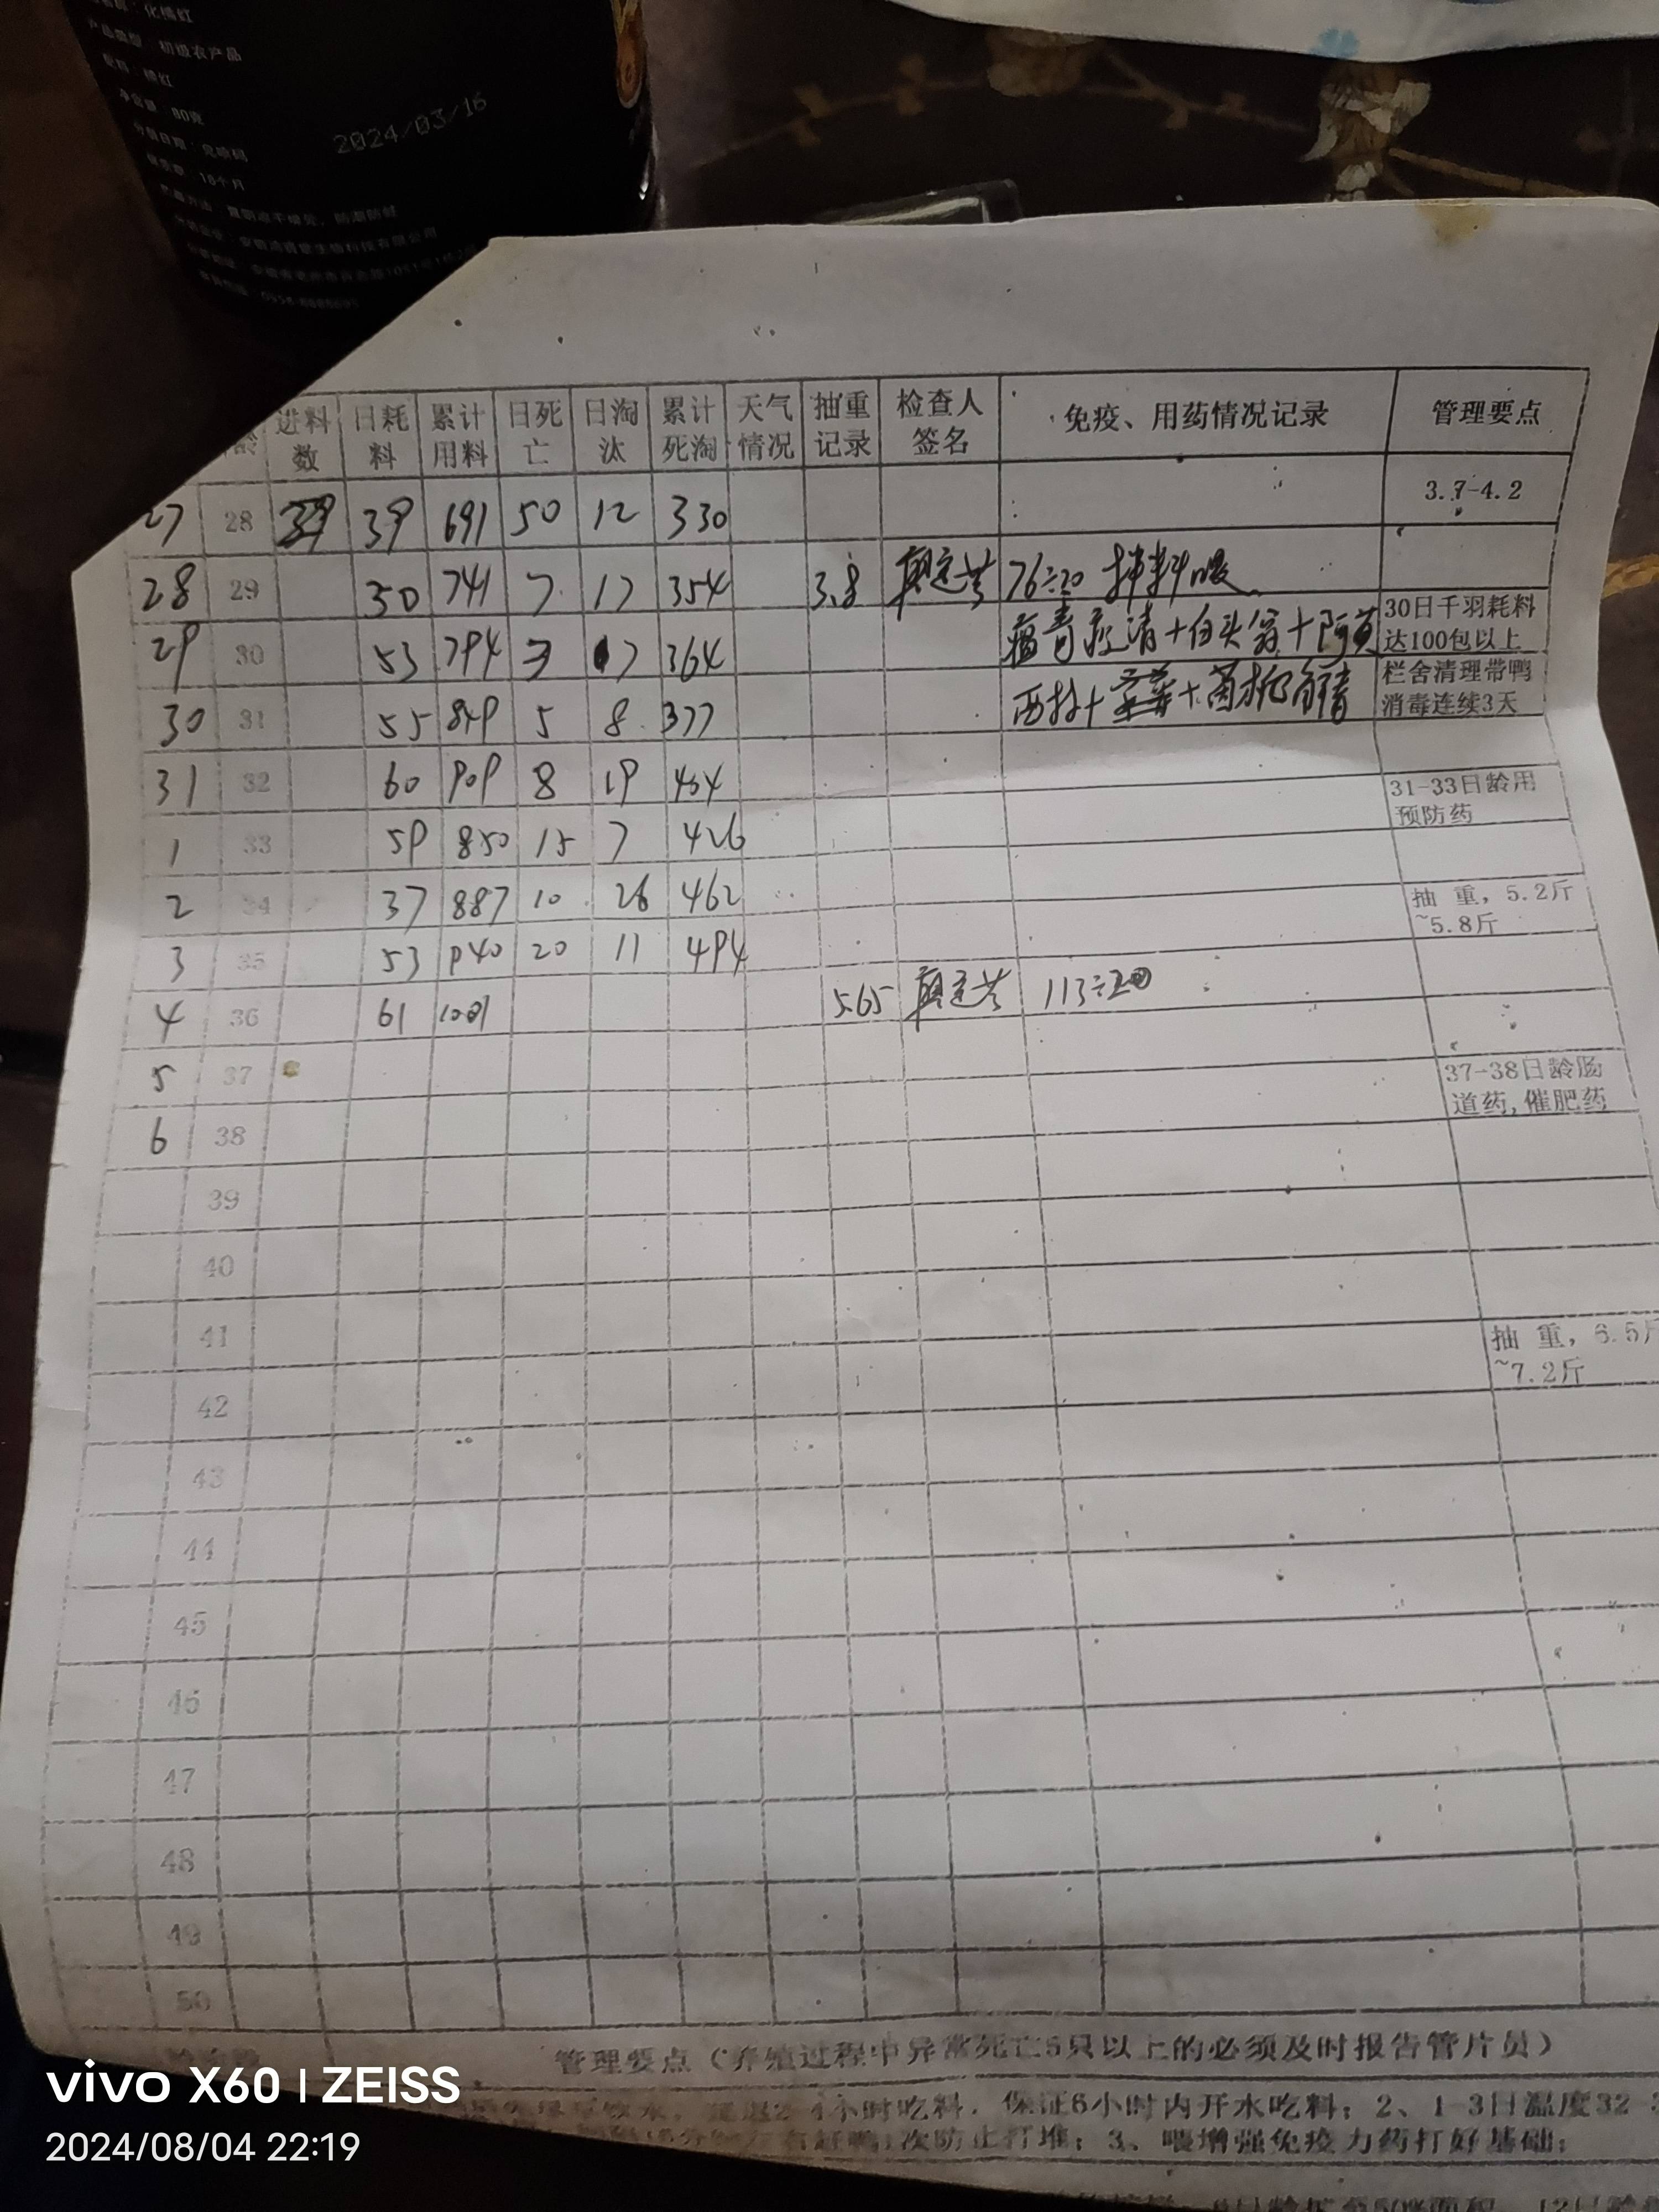 化橘红
初级农产品
80克
2024/03/16
18个月
进料数 日耗料 累计用料 日死亡 日淘汰 累计死淘 天气情况 抽重记录 检查人签名 免疫、用药情况记录 管理要点
27 28 39 691 50 12 330 3.7-4.2
28 29 50 741 7 17 354 3.8 76÷20 拌料
29 30 53 794 3 7 364 瘟毒 清+白头翁+阿莫 30日千羽耗料达100包以上
30 31 55 849 5 8 377 西林+ 栏舍清理带鸭消毒连续3天
31 32 60 909 8 19 404 31-33日龄用预防药
1 33 59 850 15 7 426
2 34 37 887 10 26 462 抽 重，5.2斤~5.8斤
3 35 53 940 20 11 494
4 36 61 1001 5.65 113÷20
5 37 37-38日龄肠道药,催肥药
6 38
39
40
41 抽 重，6.5斤~7.2斤
42
43
44
45
46
47
48
49
50
管理要点（养殖过程中异常死亡5只以上的必须及时报告管片员）
小时吃料，保证6小时内开水吃料；2、1-3日温度32
次防止打堆；3、喂增强免疫力药打好基础；
vivo X60 | ZEISS
2024/08/04 22:19